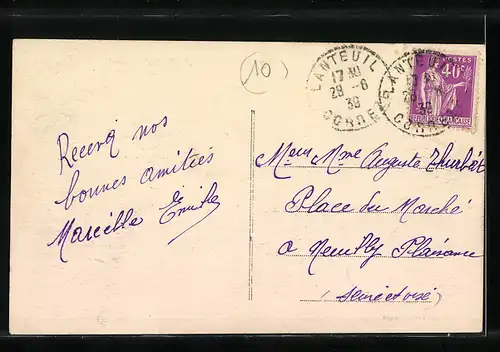 10
LANTEUIL
17 30
28 - 6
39
CORREZE
LANTEUIL
28
39
CORR
POSTES
40c
RÉPUBLIQUE FRANÇAISE
Recevez nos
bonnes amitiés
Marcelle Emile
Mme Auguste
Place du Marché
a Neuilly Plaisance
(Seine et oise)